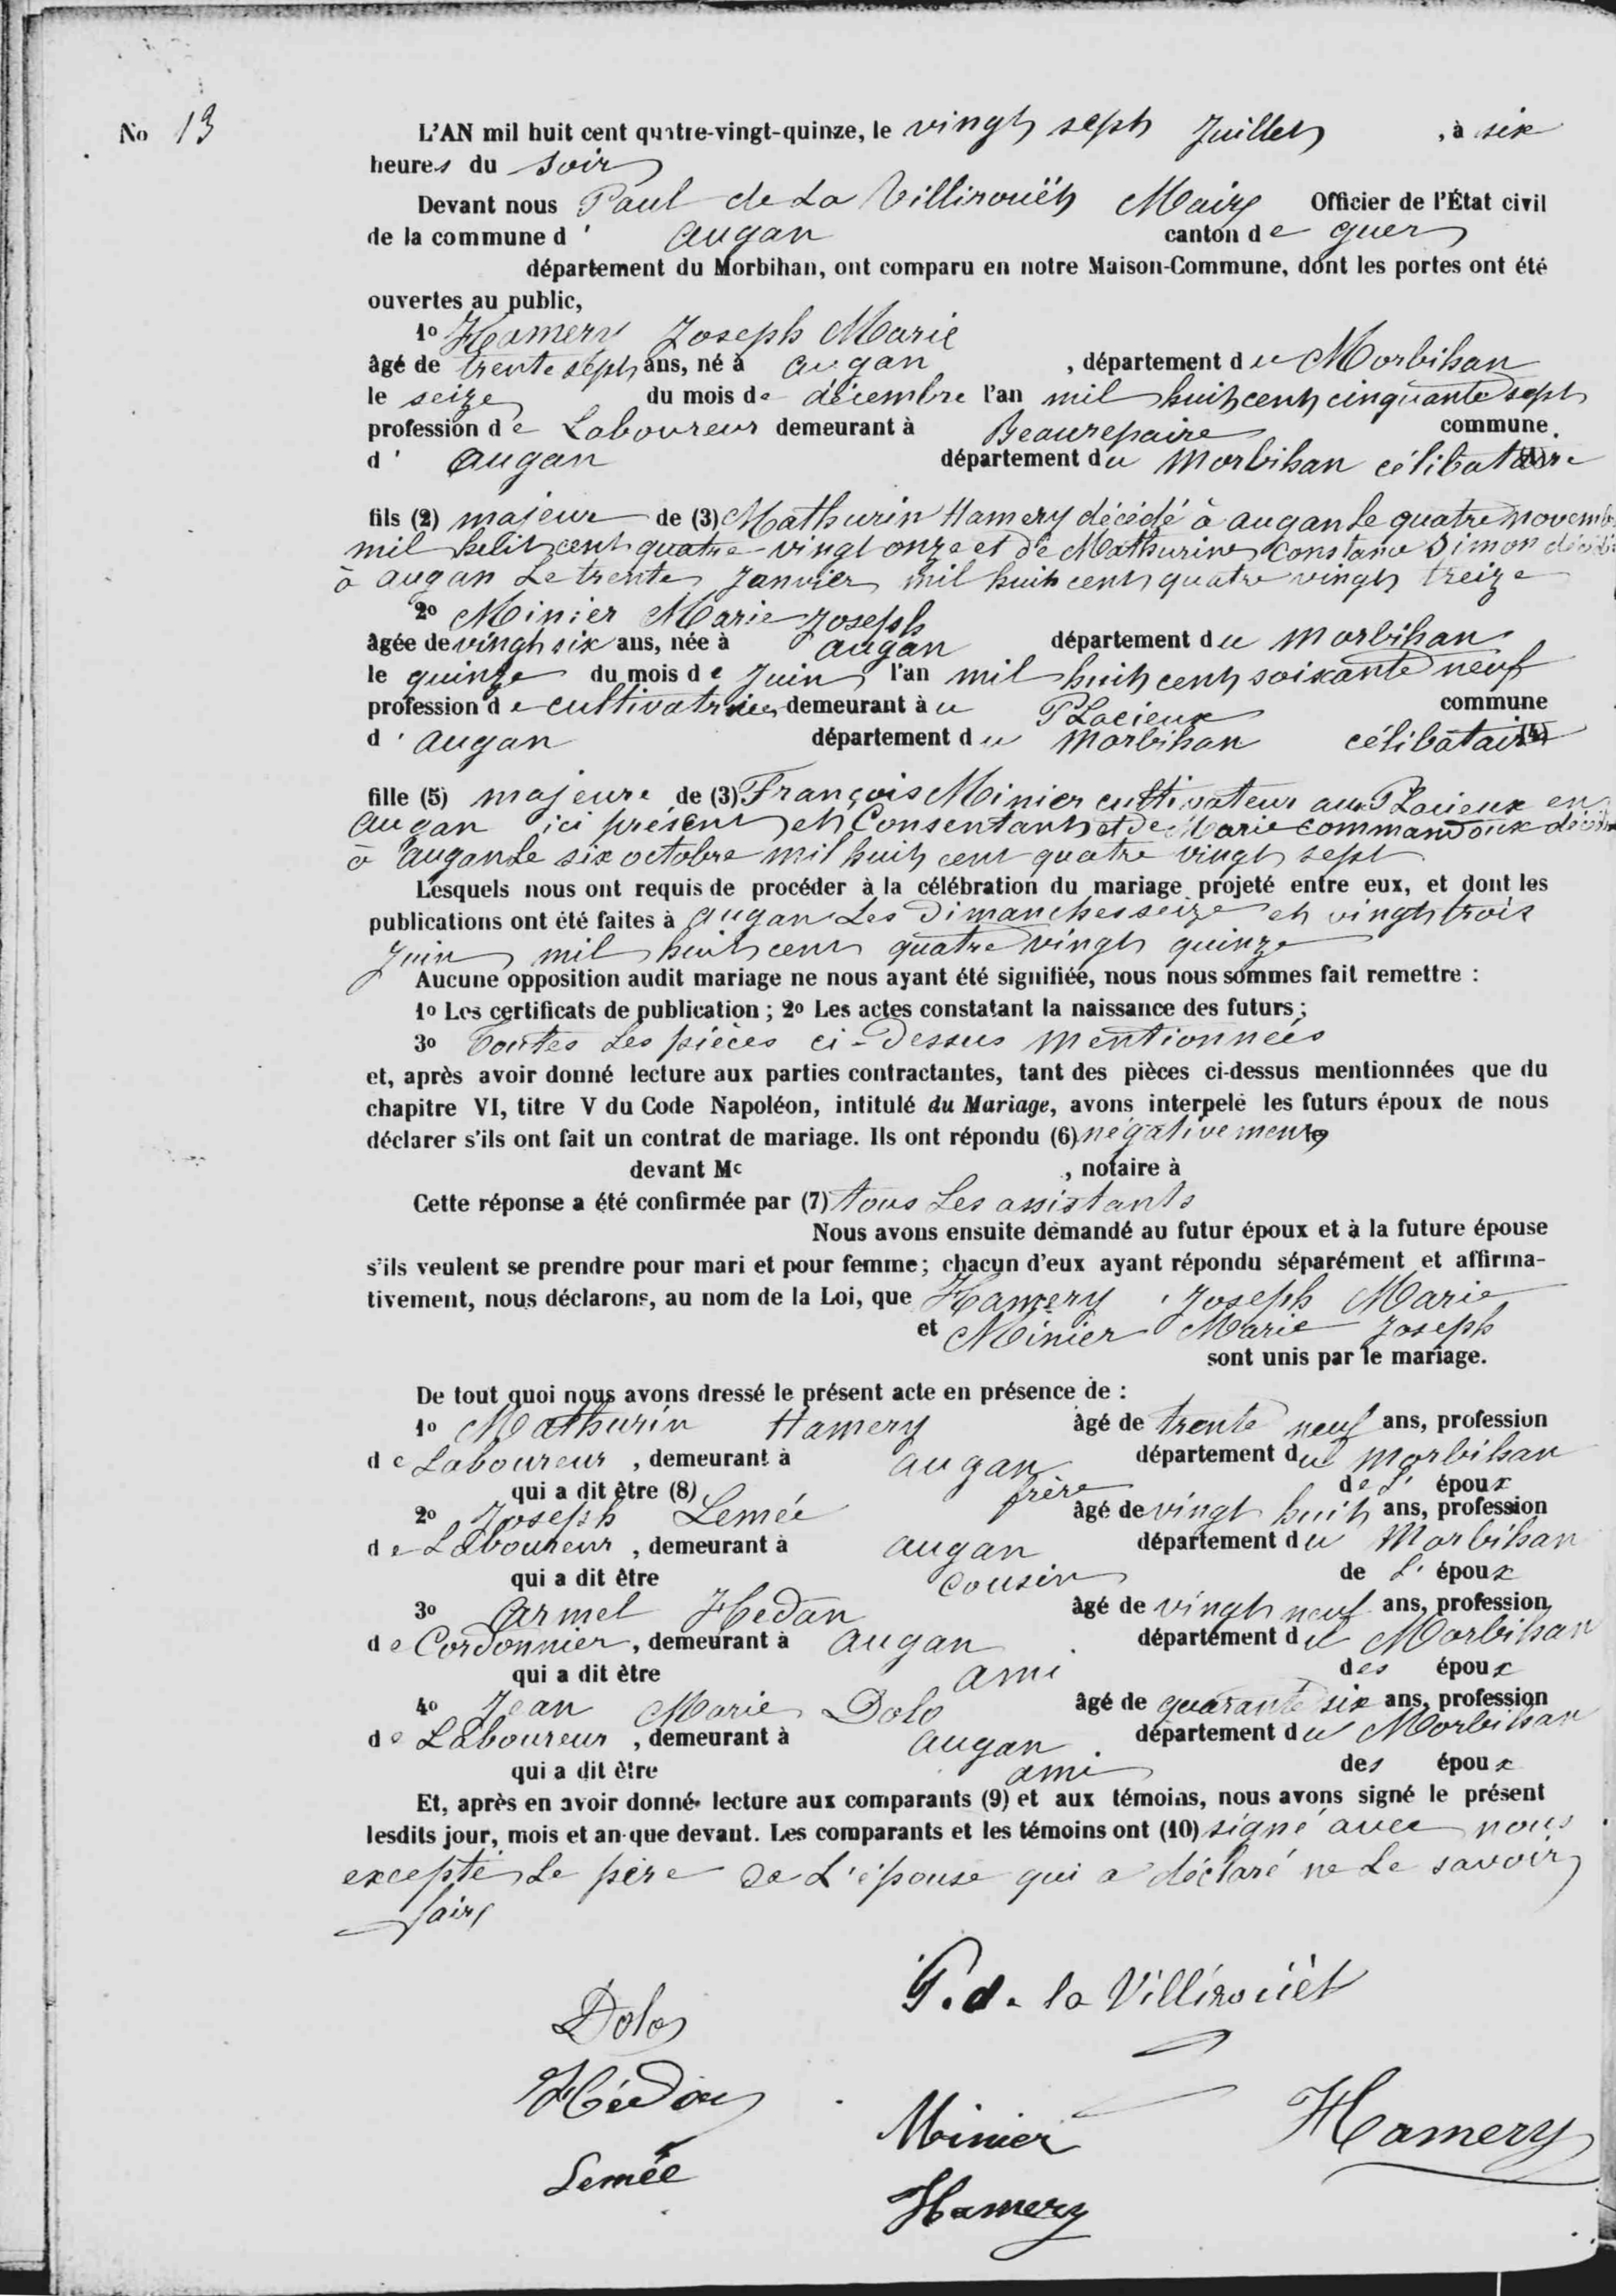 No 13
L'AN mil huit cent quatre-vingt-quinze, le vingt sept Juillet, à six
heures du soir
Devant nous Paul de La Villirouët Maire Officier de l'État civil
de la commune d' augan canton de guer
département du Morbihan, ont comparu en notre Maison-Commune, dont les portes ont été
ouvertes au public,
1º Hamery Joseph Marie
âgé de trente sept ans, né à augan, département du Morbihan
le seize du mois de décembre l'an mil huit cent cinquante sept
profession de Laboureur demeurant à Beaurepaire commune
d' augan département du Morbihan célibataire
fils (2) majeur de (3) Mathurin Hamery décédé à augan Le quatre novembre
mil huit cent quatre-vingt onze et de Mathurine Constance Simon décédée
à augan Le trente Janvier mil huit cent quatre vingt treize
2º Minier Marie Joseph
âgée de vingt six ans, née à augan département du Morbihan
le quinze du mois de Juin l'an mil huit cent soixante neuf
profession de cultivatrice demeurant à u PLacieux commune
d' augan département du Morbihan célibataire (4)
fille (5) majeure de (3) François Minier cultivateur aux PLacieux en
augan ici présent et Consentant et de Marie Commandoux décédée
à augan Le six octobre mil huit cent quatre vingt sept
Lesquels nous ont requis de procéder à la célébration du mariage projeté entre eux, et dont les
publications ont été faites à augan Les Dimanches seize et vingt trois
Juin mil huit cent quatre vingt quinze
Aucune opposition audit mariage ne nous ayant été signifiée, nous nous sommes fait remettre :
1º Les certificats de publication ; 2º Les actes constatant la naissance des futurs ;
3º Toutes Les pièces ci-Dessus mentionnées
et, après avoir donné lecture aux parties contractantes, tant des pièces ci-dessus mentionnées que du
chapitre VI, titre V du Code Napoléon, intitulé du Mariage, avons interpelé les futurs époux de nous
déclarer s'ils ont fait un contrat de mariage. Ils ont répondu (6) négativement
devant Me , notaire à
Cette réponse a été confirmée par (7) tous Les assistants
Nous avons ensuite demandé au futur époux et à la future épouse
s'ils veulent se prendre pour mari et pour femme ; chacun d'eux ayant répondu séparément et affirma-
tivement, nous déclarons, au nom de la Loi, que Hamery Joseph Marie
et Minier Marie Joseph
sont unis par le mariage.
De tout quoi nous avons dressé le présent acte en présence de :
1º Mathurin Hamery âgé de trente neuf ans, profession
de Laboureur, demeurant à augan département du Morbihan
qui a dit être (8) frère de L' époux
2º Joseph Lemée âgé de vingt huit ans, profession
de Laboureur, demeurant à augan département du Morbihan
qui a dit être Cousin de L' époux
3º Armel Hedan âgé de vingt neuf ans, profession
de Cordonnier, demeurant à augan département du Morbihan
qui a dit être ami des époux
4º Jean Marie Dolo âgé de quarante six ans, profession
de Laboureur, demeurant à augan département du Morbihan
qui a dit être ami des époux
Et, après en avoir donné lecture aux comparants (9) et aux témoins, nous avons signé le présent
lesdits jour, mois et an que devant. Les comparants et les témoins ont (10) signé avec nous
excepté Le père de L'épouse qui a déclaré ne Le savoir
faire
P. d. la Villirouët
Dolo
Hédan
Minier
Hamery
Lemée
Hamery